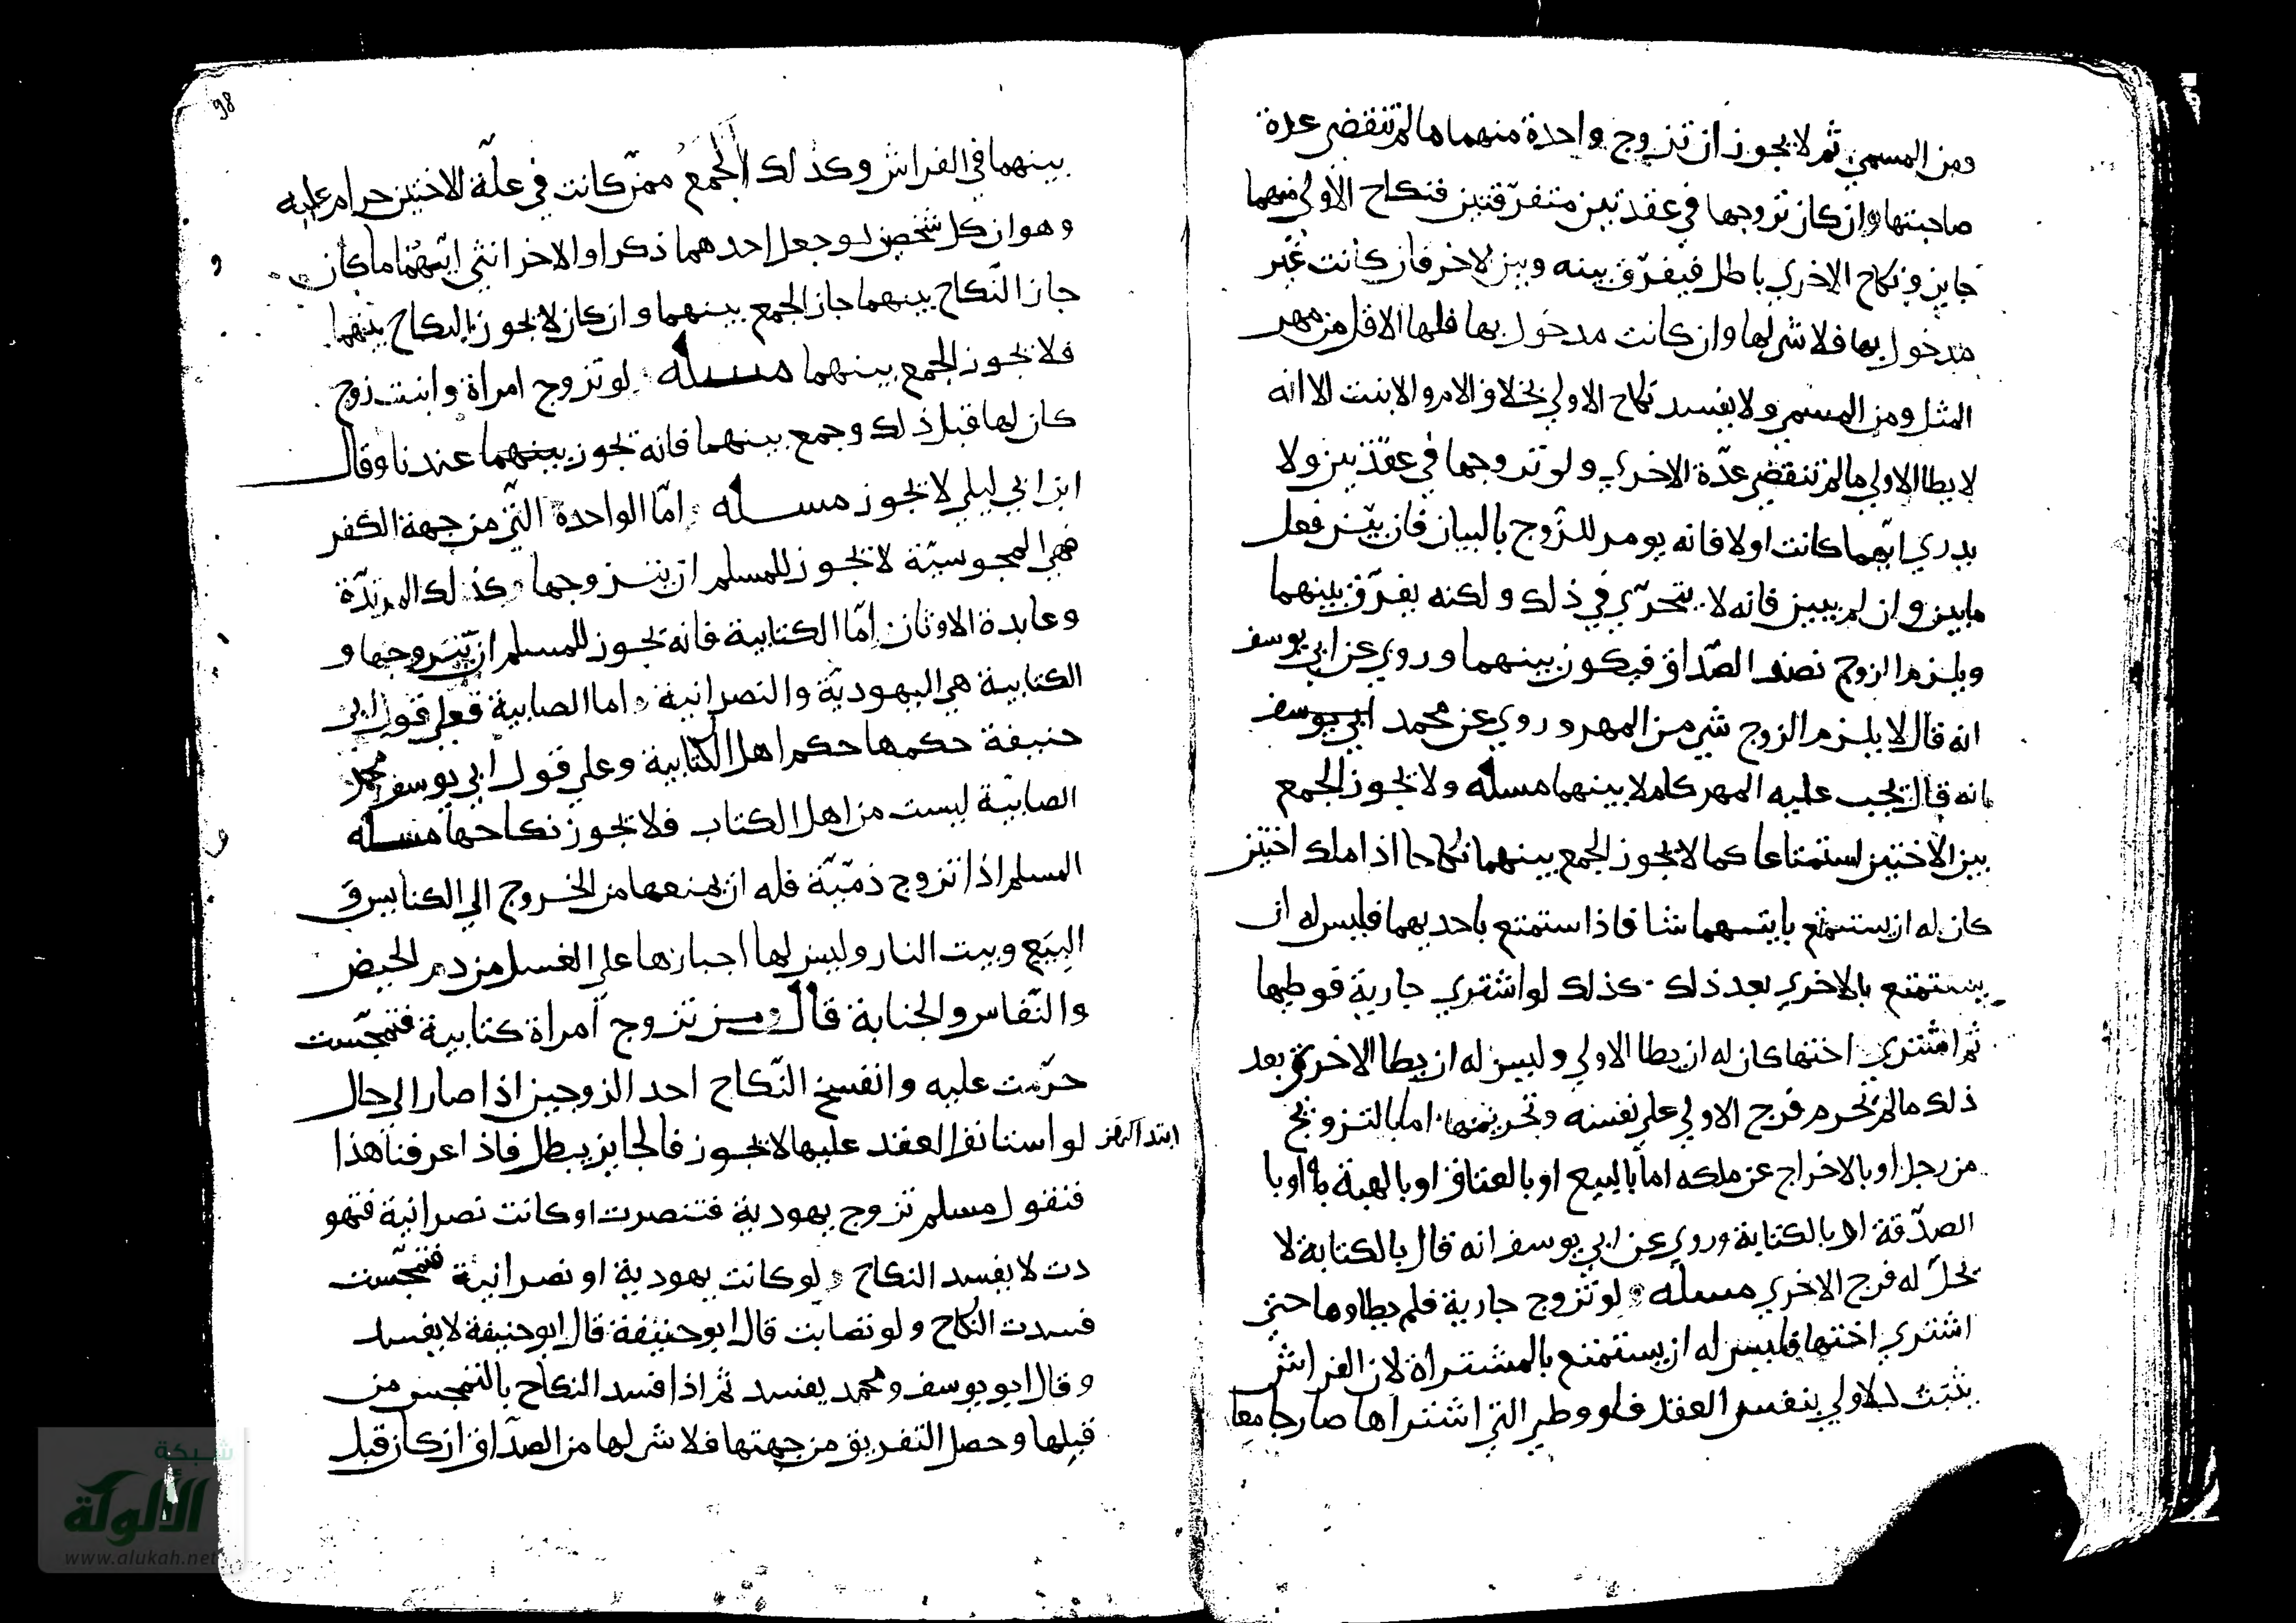 ومن المسمي ثم لا يجوز ان تزوج واحدة منهما ما لم تنقضي عدة
صاحبتها وان كان تزوجها في عقدتين متفرّقتين فنكاح الأولي منهما
جايز ونكاح الاخري باطل فيفرّق بينه وبين لاخر فان كانت غير
مدخول بها فلا شي لها وان كانت مدخول بها فلها الاقل من مهر
المثل ومن المسمي ولا يفسد نكاح الاولي بخلاف الام والابنت الا انه
لا يطا الاولي ما لم تنقضي عدّة الاخري ولو تزوجها في عقدتين ولا
يدري ايهما كانت اولا فانه يومر للزوج بالبيان فان بيّن فعل
مابين وان لم يبين فانه لا يتحرّي في ذلك ولكنه يفرّق بينهما
ويلزم الزوج نصف الصّداق فيكون بينهما وروي عن ابي يوسف
انه قال لا يلزم الزوج شي من المهر وروي عن محمد ابي يوسف
انه قال يجب عليه المهر كاملا بينهما مسله ولا يجوز الجمع
بين الاختين استمتاعا كما لا يجوز الجمع بينهما نكاحا اذا ملك اختين
كان له ان يستمتع بايتهما شا فاذا استمتع باحديهما فليس له ان
يستمتع بالاخري بعد ذلك كذلك لو اشتري جارية فوطيها
ثم اشتري اختها كان له ان يطا الاولي وليس له ان يطا الاخري بعد
ذلك ما لم تحرم فرج الاولي علي نفسه وتحريمها اما بالتزويج
من رجل او بالاخراج عن ملكه اما بالبيع او بالعتاق او بالهبة او با
الصدّقة او بالكتابة وروي عن ابي يوسف انه قال بالكتابة لا
يحلّ له فرج الاخري مسله لو تزوج جارية فلم يطاوها حتي
اشتري اختها فليس له ان يستمتع بالمشتراة لان الفراش
يثبت للاولي بنفس العقد فلو وطي التي اشتراها صار جامعا
98
بينهما في الفراش وكذلك الجمع ممن كانت في علّة الاختين حرام عليه
وهو ان كل شخصين لو جعل احدهما ذكرا او الاخر انثي ايّهما ما كان
جاز النّكاح بينهما جاز الجمع بينهما وان كان لا يجوز النكاح بينهما
فلا يجوز الجمع بينهما مسله لو تزوج امراة وابنت زوج
كان لها قبل ذلك وجمع بينهما فانه يجوز بينهما عندنا وقال
ابن ابي ليلي لا يجوز مسله امّا الواحدة التي من جهة الكفر
فهي المجوسيّة لا يجوز للمسلم ان يتزوجها وكذلك المرتدّة
وعابدة الاوثان امّا الكتابية فانه يجوز للمسلم ان يتزوجها و
الكتابية هي اليهوديّة والنصرانية واما الصابية فعلي قول ابي
حنيفة حكمها حكم اهل الكتابية وعلي قول ابي يوسف محمد
الصابيّة ليست من اهل الكتاب فلا يجوز نكاحها مسله
المسلم اذا تزوج ذمّيّة فله ان يمنعها من الخروج الي الكنايس و
البيَع وبيت النار وليس لها اجبارها علي الغسل من دم الحيض
والنّفاس والجنابة قال ومن تزوج امراة كتابية فتمجّست
حرّمت عليه وانفسخ النّكاح احد الزوجين اذا صار الي حال
لو استانف العقد عليها لا يجوز فالجايز يبطل فاذا عرفنا هذا
فنقول مسلم تزوج يهودية فتنصرت او كانت نصرانية فتهو
دت لا يفسد النكاح ولو كانت يهودية او نصرانية فتمجّست
فسدت النكاح ولو تصابت قال ابو حنيفة قال ابو حنيفة لا يفسد
وقال ابو يوسف ومحمد يفسد ثم اذا فسد النكاح بالتمجس من
قبلها وحصل التفريق من جهتها فلا شي لها من الصّداق ان كان قبل
شبكة
الألوكة
www.alukah.net